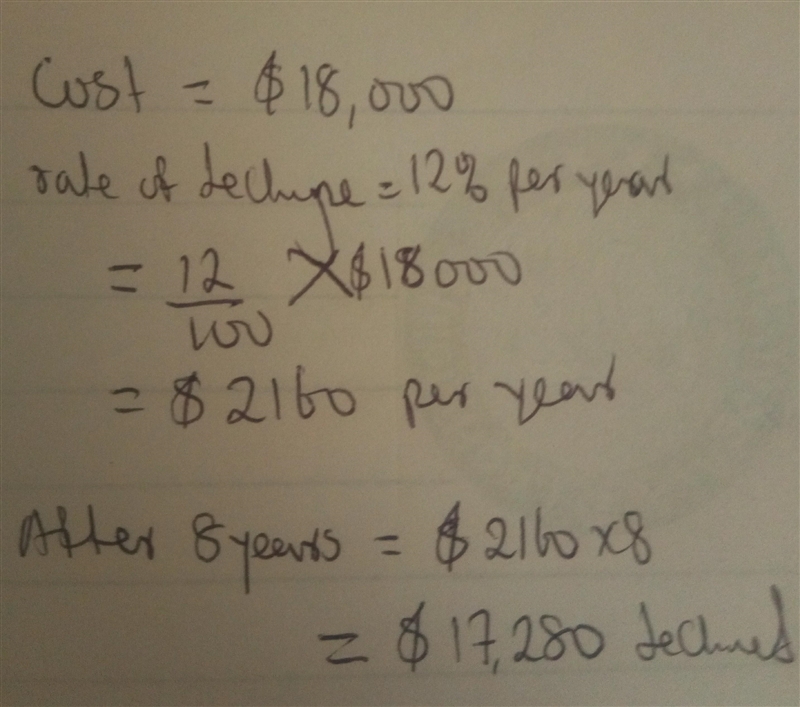 Cost = $18,000
rate of decline = 12% per year
= 12/100 X $18000
= $2160 per year
After 8 years = $2160 x 8
= $17,280 declined